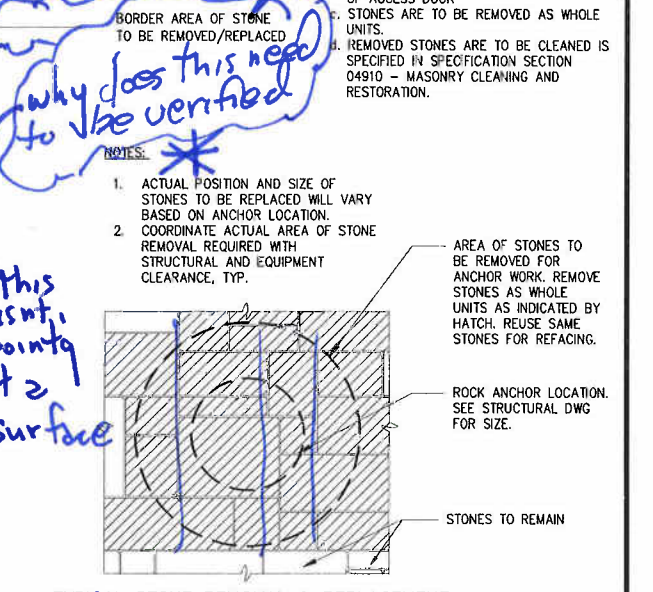 OF ACCESS DOOR
c. STONES ARE TO BE REMOVED AS WHOLE
UNITS.
d. REMOVED STONES ARE TO BE CLEANED IS
SPECIFIED IN SPECIFICATION SECTION
04910 – MASONRY CLEANING AND
RESTORATION.
BORDER AREA OF STONE
TO BE REMOVED/REPLACED
why does this need
to be verified
NOTES:
1. ACTUAL POSITION AND SIZE OF
STONES TO BE REPLACED WILL VARY
BASED ON ANCHOR LOCATION.
2. COORDINATE ACTUAL AREA OF STONE
REMOVAL REQUIRED WITH
STRUCTURAL AND EQUIPMENT
CLEARANCE, TYP.
this
surface
AREA OF STONES TO
BE REMOVED FOR
ANCHOR WORK. REMOVE
STONES AS WHOLE
UNITS AS INDICATED BY
HATCH. REUSE SAME
STONES FOR REFACING.
ROCK ANCHOR LOCATION.
SEE STRUCTURAL DWG
FOR SIZE.
STONES TO REMAIN